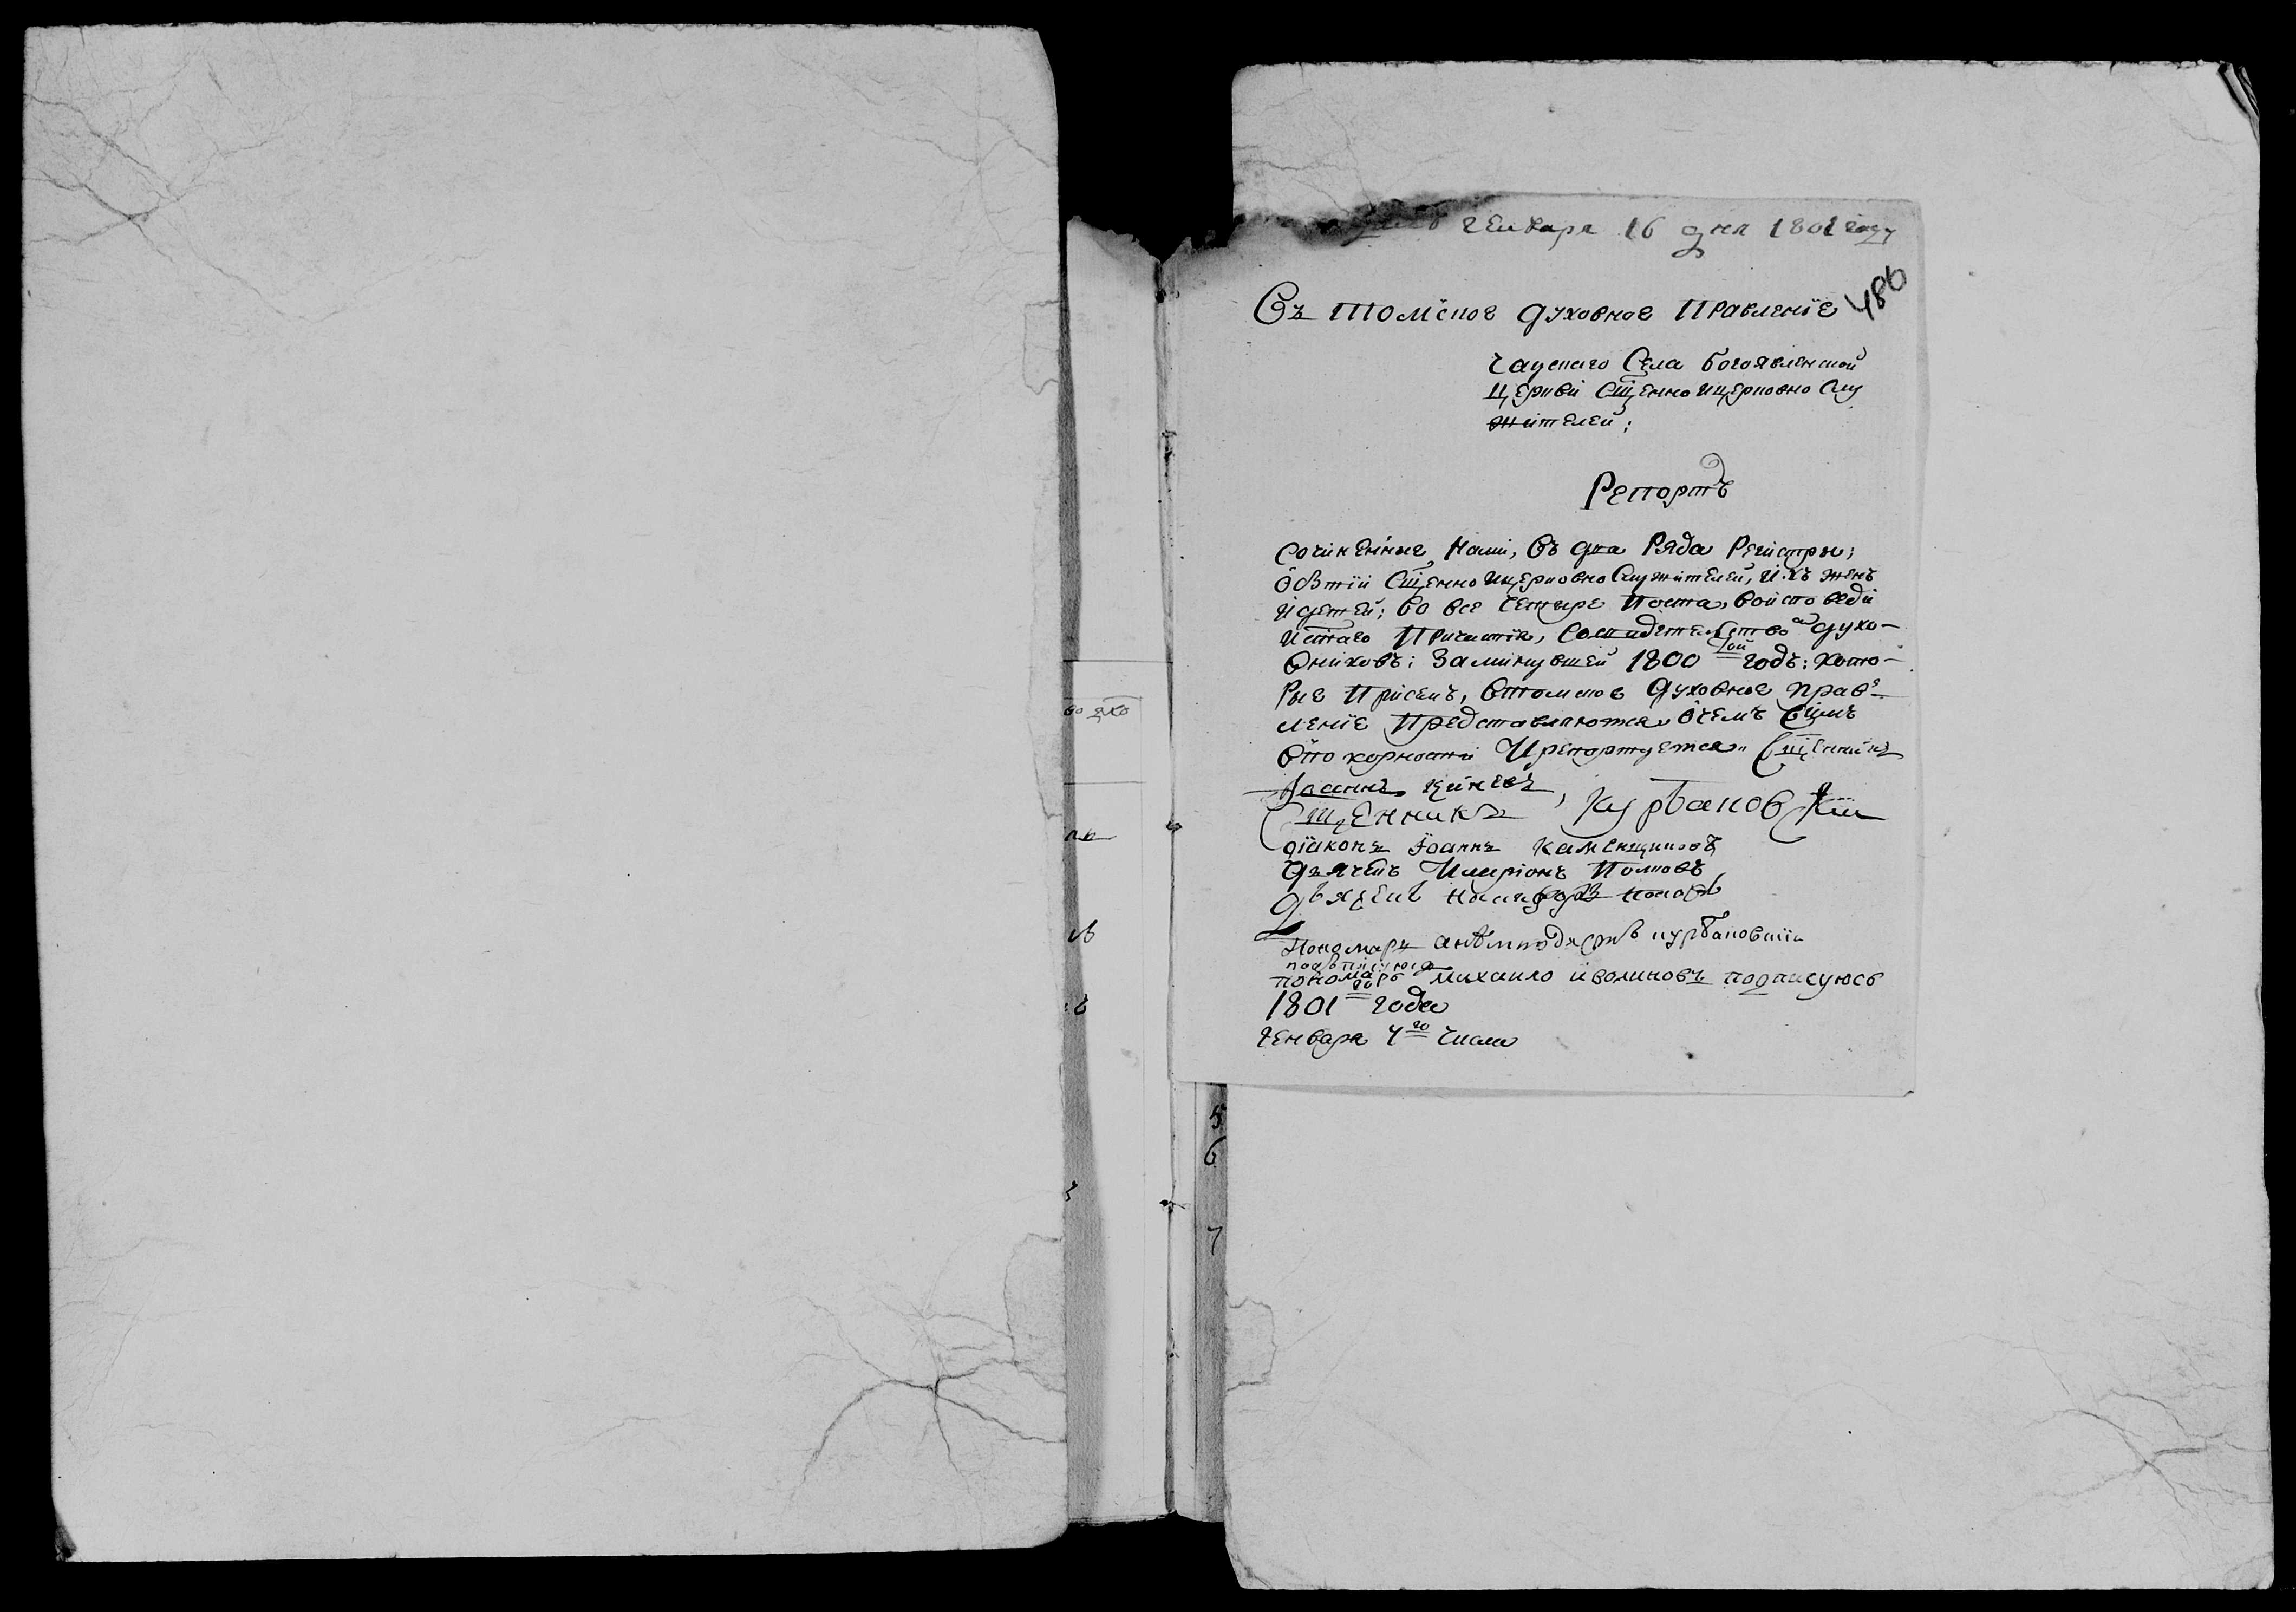 генваря 16 дня 1801 году
486
Въ томское духовное Правленїе
Чаускаго Села богоявленской
Церкви Сщенно ицерковно Слу
жителей;
Репортъ
Сочиненные Нами, Въ два Ряда Регистры;
обытїи Сщенно ицерковно Служителей, ихъ женъ
идетей; во все Четыре поста, воисповеди
истаго Причастїя, Сосвидетельством духо-
вниковъ; Заминувшей 1800 той годъ; кото-
рые Присемъ, втомское духовное прав-
ленїе Представляются, очемъ Симъ
впокорности Ирепортуется. Сщенникъ
Иоаннъ
Сщенникъ Курбановскїи
дїаконъ Їоаннъ Каменщиковъ
Дьячекъ Иларїонъ Поповъ
Дьячекъ Никифоръ Поповъ
Пономарь курбановскїи
подпїсуюся
пономарь михаило иволиновъ подписуюсь
1801 го года
Генваря 4 го Числа
во яко
5
6
7